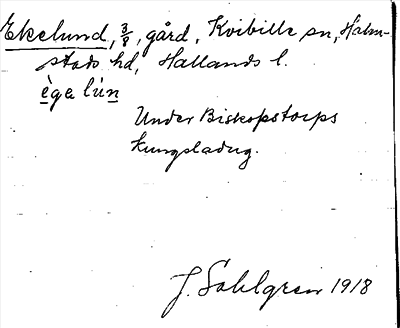 Ekelund, 3/8, gård, Kvibille sn, Halm-
stads hd, Hallands l.
èga lún
Under Biskopstorps
kungsladug.
J. Sahlgren 1918